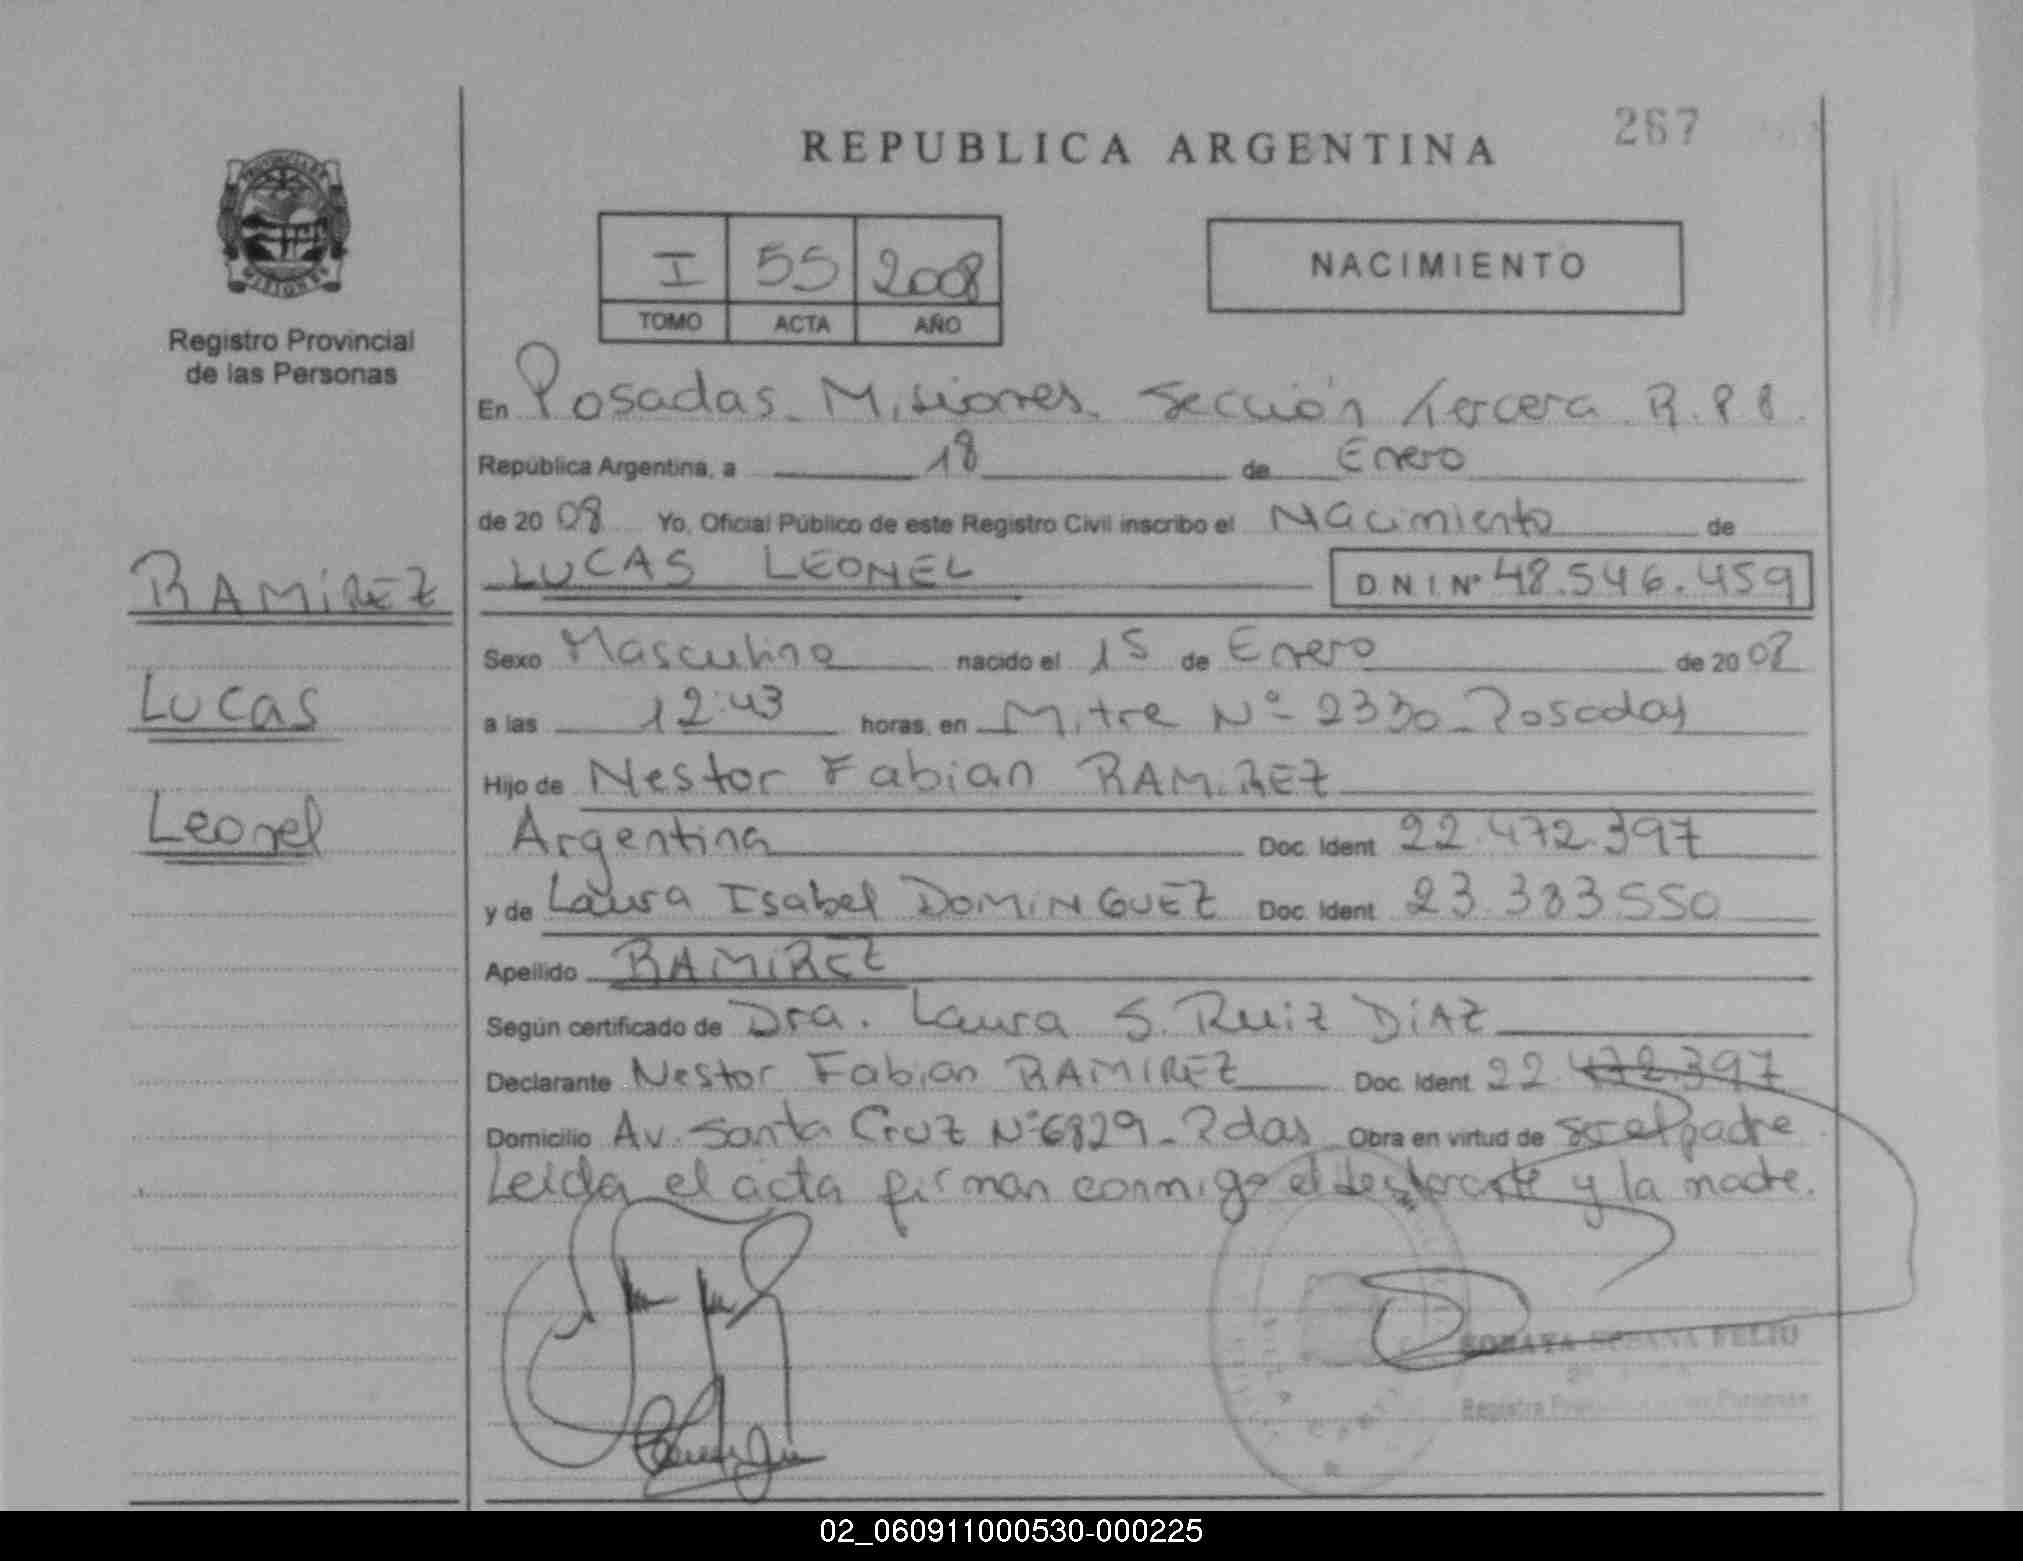 267
REPUBLICA ARGENTINA
I 55 2008
TOMO ACTA AÑO
NACIMIENTO
Registro Provincial
de las Personas
RAMIREZ
Lucas
Leonel
En Posadas. Misiones. Sección Tercera R.P.P.
República Argentina, a 18 de Enero
de 20 08 Yo, Oficial Público de este Registro Civil inscribo el Nacimiento de
LUCAS LEONEL D N I. Nº 48.546.459
Sexo Masculino nacido el 15 de Enero de 20 08
a las 12:43 horas, en Mitre Nº 2330_Posadas
Hijo de Nestor Fabian RAMIREZ
Argentina Doc. Ident 22.472.397
y de Laura Isabel DOMINGUEZ Doc. Ident 23.383.550
Apellido RAMIREZ
Según certificado de Dra. Laura S. Ruiz DIAZ
Declarante Nestor Fabian RAMIREZ Doc. Ident 22.472.397
Domicilio Av. Santa Cruz Nº6829_Pdas Obra en virtud de ser el padre
Leida el acta firman conmigo el declarante y la madre.
SUSANA FELIU
02_060911000530-000225